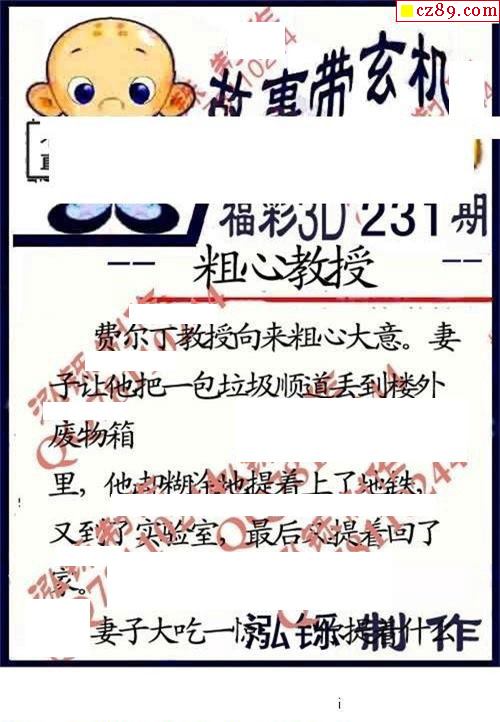 cz89.com
故事带玄机
福彩3D 231期
-- 粗心教授 --
费尔丁教授向来粗心大意。妻
子让他把一包垃圾顺道丢到楼外
废物箱
里，他却糊涂地提着上了地铁，
又到了实验室，最后又提着回了
家。
妻子大吃一惊 你提着什么
泓铄制作
i